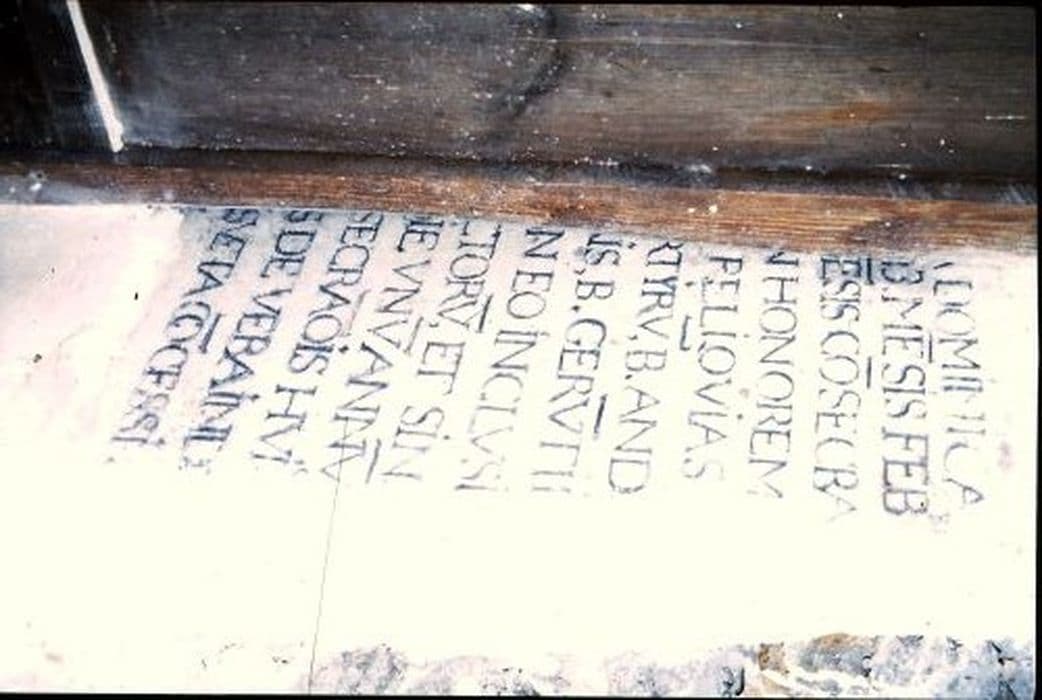 DOMINICA
B MĒSIS FEB
ESIS CŌSECRA
N HONOREM
RELIQVIAS
RTYRV̄.B.AND
IS.B.GERVT̄II
N EO INCLVSI
CTORV̄ ET SIN
NE VNV̄ ANNV̄
SECRAŌIS HVI
S DE VERA
SVETA CŌCESSI